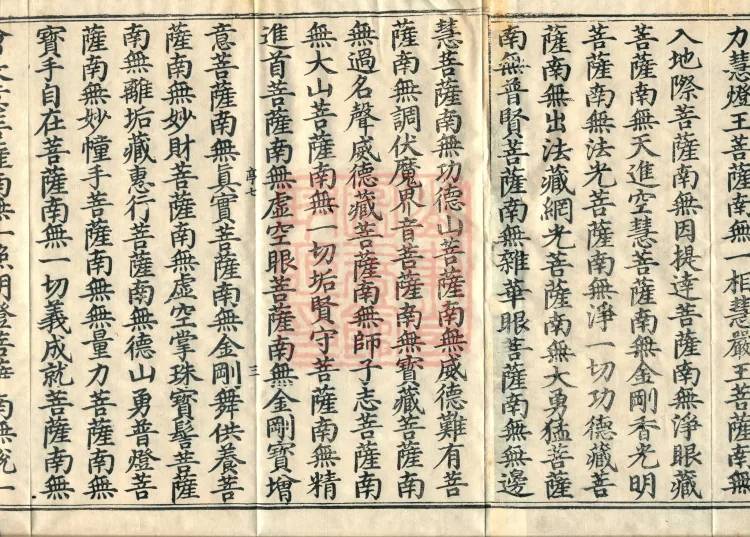 力慧燈王菩薩南無一相慧嚴王菩薩
入地際菩薩南無因提達菩薩南無淨眼藏
菩薩南無天進空慧菩薩南無金剛香光明
菩薩南無法光菩薩南無淨一切功德藏菩
薩南無出法藏網光菩薩南無大勇猛菩薩
南無普賢菩薩南無雜華眼菩薩南無無邊
慧菩薩南無功德山菩薩南無威德難有菩
薩南無調伏魔界音菩薩南無寶藏菩薩南
無過名聲威德藏菩薩南無師子志菩薩南
無大山菩薩南無一切垢賢守菩薩南無精
進首菩薩南無虛空眼菩薩南無金剛寶增
七 三
意菩薩南無眞實菩薩南無金剛舞供養菩
薩南無妙財菩薩南無虛空掌珠寶髻菩薩
南無離垢藏惠行菩薩南無德山勇普燈菩
薩南無妙幢手菩薩南無無量力菩薩南無
寶手自在菩薩南無一切義成就菩薩南無
薩南無一照明燈菩薩南無